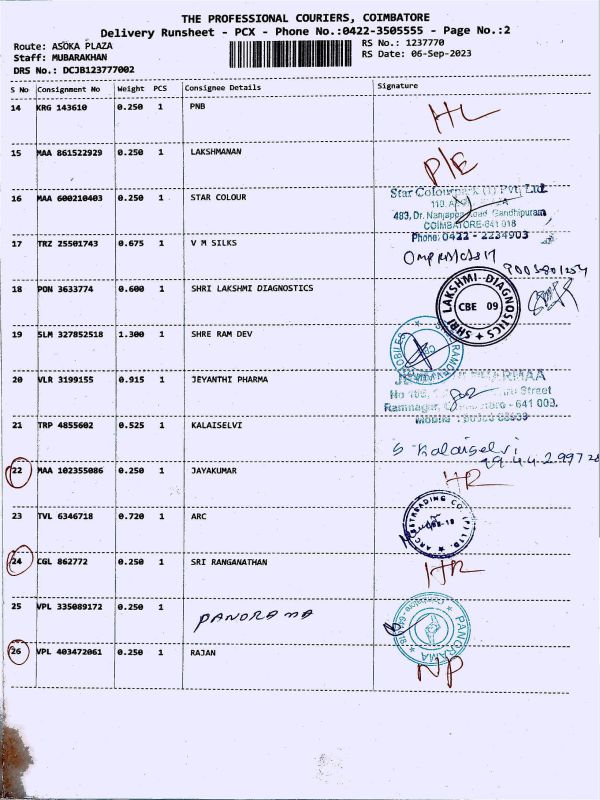 THE PROFESSIONAL COURIERS, COIMBATORE
Delivery Runsheet - PCX - Phone No.:0422-3505555 - Page No.:2
Route: ASOKA PLAZA RS No.: 1237770
Staff: MUBARAKHAN RS Date: 06-Sep-2023
DRS No.: DCJB123777002
S No Consignment No Weight PCS Consignee Details Signature
14 KRG 143610 0.250 1 PNB HL
15 MAA 861522929 0.250 1 LAKSHMANAN P/E
16 MAA 600210403 0.250 1 STAR COLOUR
Star Colourpark (I) Pvt. Ltd.
483, Dr. Nanjappa Road Gandhipuram
COIMBATORE-641 018
Phone: 0422 - 2234903
17 TRZ 25501743 0.675 1 V M SILKS
18 PON 3633774 0.600 1 SHRI LAKSHMI DIAGNOSTICS
SHRI LAKSHMI DIAGNOSTICS
CBE 09
19 SLM 327852518 1.300 1 SHRE RAM DEV
20 VLR 3199155 0.915 1 JEYANTHI PHARMA
PHARMAA
Street
Ramnagar, 641 003.
21 TRP 4855602 0.525 1 KALAISELVI
S Kalaiselvi
22 MAA 102355086 0.250 1 JAYAKUMAR HR
23 TVL 6346718 0.720 1 ARC
24 CGL 862772 0.250 1 SRI RANGANATHAN HR
25 VPL 335089172 0.250 1 PANORAMA
PANORAMA
26 VPL 403472061 0.250 1 RAJAN NP